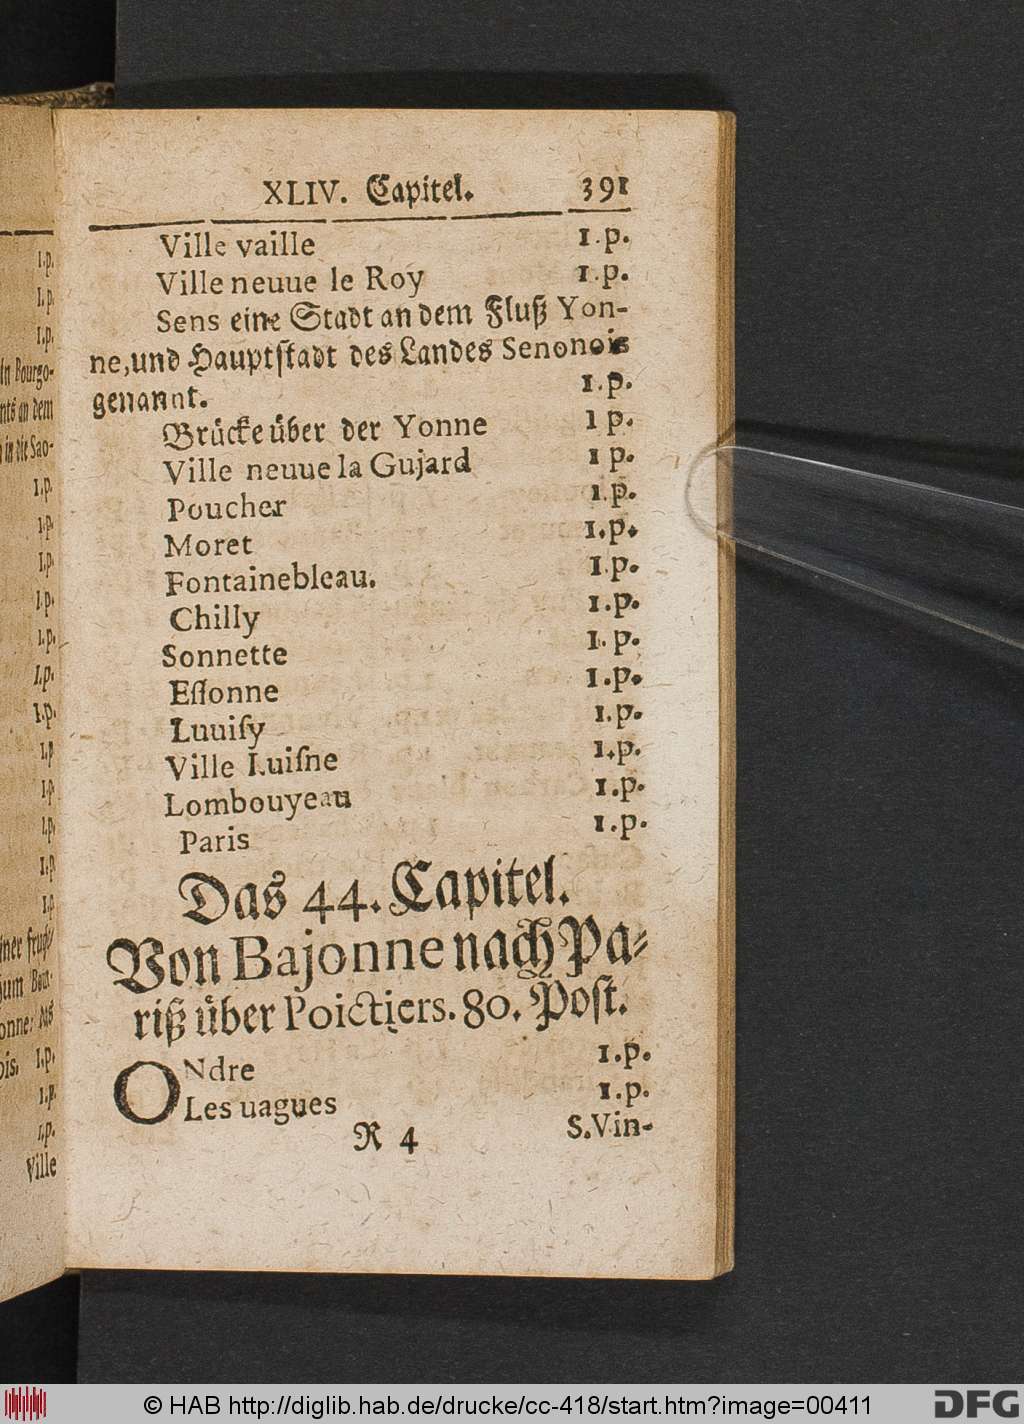 XLIV. Capitel. 391
Ville vaille 1.p.
Ville neuue le Roy 1.p.
Sens eine Stadt an dem Fluß Yon-
ne, und Hauptſtadt des Landes Senonois
genannt. 1.p.
Brücke über der Yonne 1 p.
Ville neuue la Gujard 1 p.
Poucher 1.p.
Moret 1.p.
Fontainebleau. 1.p.
Chilly 1.p.
Sonnette 1.p.
Eſſonne 1.p.
Luuiſy 1.p.
Ville Luiſne 1.p.
Lombouyeau 1.p.
Paris 1.p.
Das 44. Capitel.
Von Bajonne nach Pa-
riß über Poictiers. 80. Poſt.
ONdre 1.p.
Les uagues 1.p.
R 4 S.Vin-
1.p.
1.p.
1.p.
in Bourgo-
an dem
in die Sao-
1.p.
1.p.
1.p.
1.p.
1.p.
1.p.
1.p.
1.p
1.p
1.p
1.p
1.p
1.p.
1.p.
1.p.
Ville
© HAB http://diglib.hab.de/drucke/cc-418/start.htm?image=00411
DFG